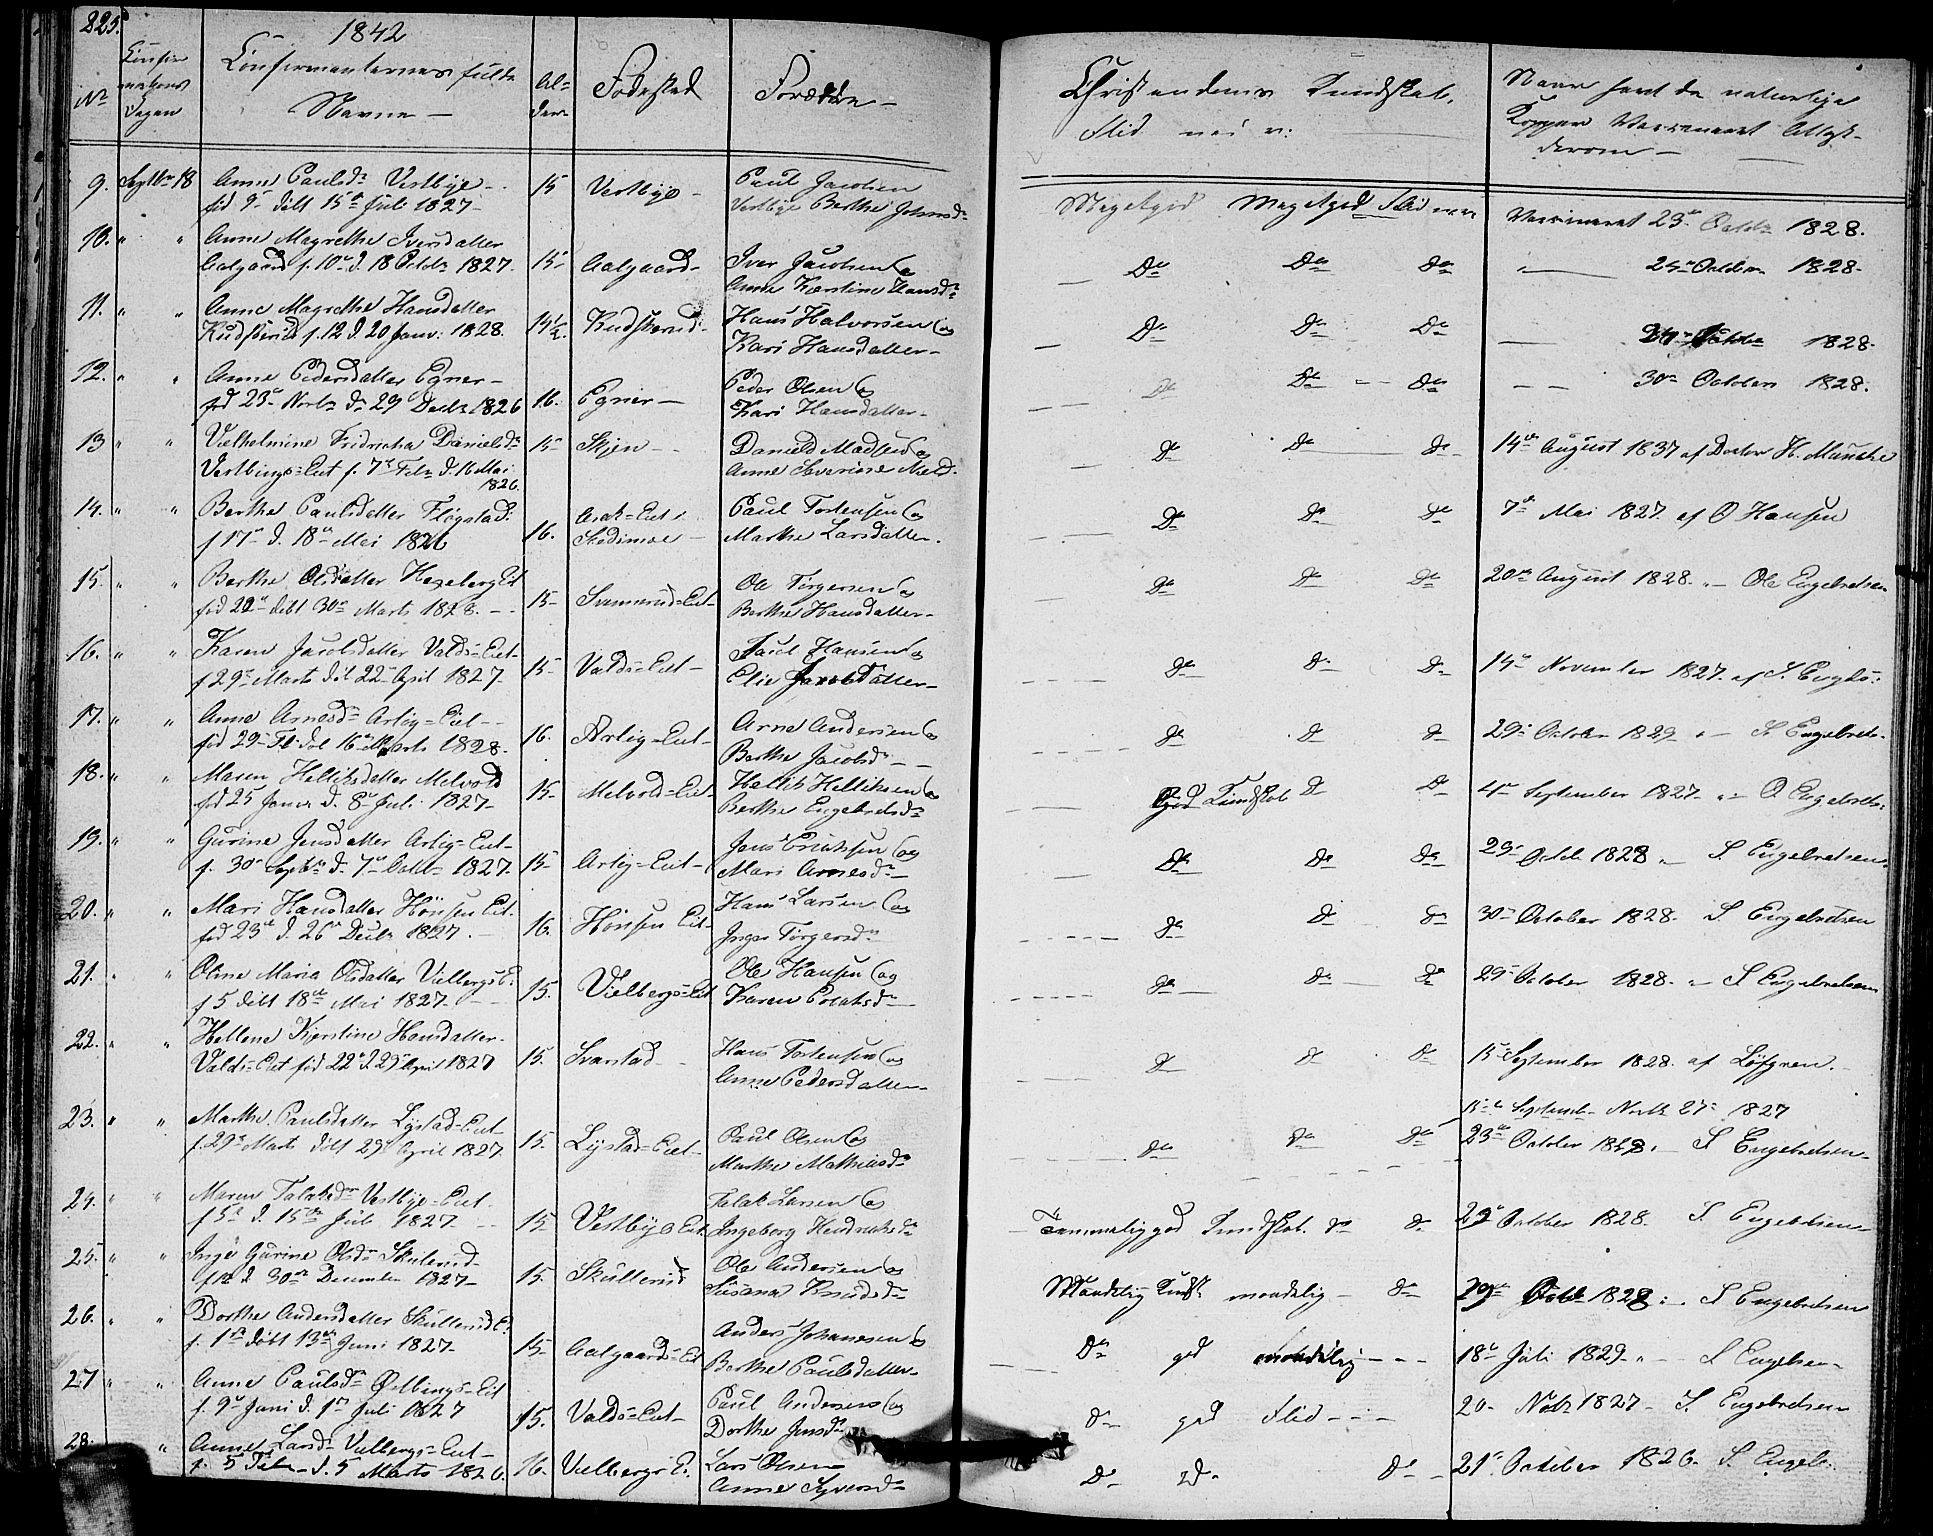 225.
1842
No
Confirmationsdagen
Confirmanternes fulde
Navne
Alder
Fødested
Forældre
Christendoms Kundskab,
Flid
Naar havt de naturlige
Kopper Vaccineret Attest
derom
9. Septbr 18 Anne Paulsdr Vestbye 15 Vestbye Paul Jacobsen
fød 9 døbt 15de Juli 1827 Vestbye Berthe Johnsdr
Megetgod Megetgod Flid Vaccineret 23de Octobr 1828.
10. " " Anne Magrethe Iversdatter
Aalgaard f. 10de d. 18 Octobr 1827. 15 Aalgaard Iver Jacobsen og
Anne Kierstine Hansdr
Do Do Do October 1828.
11. " " Anne Magrethe Hansdatter
f. 12 d. 20 Janv: 1828. 14½ Hans Halvorsen og
Kari Hansdatter
Do Do Do 1828.
12. " " Anne Pedersdatter Egner
fød 23de Novbr dr 29 Decbr 1826 16. Egner Peder Olsen og
Kari Hansdatter
Do Do Do 30te October 1828.
13 " " Vilhelmine Fridricka Danielsdr
Eiet f. 7de Febr d. 16 Mai
1826. 15 Skjen Danield Madsen og
Anne
Do Do Do 14de August 1837 af Doctor H. Munske
14. " " Berthe Paulsdatter Fløgstad
f 17de d. 18de Mai 1826 16. Eiet
Skedsmoe Paul Tostensen og
Marthe Larsdatter
Do Do Do 7de Mai 1827. af O Hansen
15. " " Berthe Olsdatter Hageberg Eiet
fød 22de døbt 30te Marts 1828. 15 Eiet Ole Torgersen og
Berthe Hansdatter
Do Do Do 20de August 1828. " Ole Engebretsen
16. " " Karen Jacobsdatter Valds-Eiet
f 29de Marts døbt 22de April 1827 15 Valds-Eiet Hansen og
Elie Jacobsdatter
Do Do Do 14de November 1827. af S. Engebs:
17. " " Anne Arnesdr Arteig-Eiet
fød 29de Fb. døbt 16de Marts 1828. 16. Arteig-Eiet Arne Andersen og
Berthe Jacobsdr
Do Do Do 29de October 1829 " S Engebrets.
18. " " Maren Helliksdatter Melvold
fød 25 Janvr d. 8de Juli 1827 15 Melvold-Eiet Hellik Helliksen og
Berthe Engebretsdr
God Kundskab Do Do 4de September 1827. " O Engebrets:
19. " " Gurine Jensdatter Arteig-Eiet
f. 30te Septbr d. 7de Octobr 1827. 15 Arteig-Eiet Jens Erichsen og
Mari Arnesdr
Do Do Do 29de Octobr 1828 " S. Engebretsen
20. " " Mari Hansdatter Hønsen Eiet.
fød 23de d. 26de Decbr 1827. 16. Hønsen Eiet Hans Larsen og
Inger Torgersdr
Do Do Do 30te October 1828. S Engebretsen
21. " " Oline Maria Olsdatter Vielbergs E:
f 5 døbt 18de Mai 1827. 15. Vielbergs-Eiet Ole Hansen og
Karen
Do Do Do 29de October 1828. " S Engebretsen
22. " " Hellene Kjerstine Hansdatter
Valds-Eiet fød 22de d. 29de April 1827 15. Svarstad Hans Tostensen og
Anne Pedersdatter
Do Do Do 15de September 1828. af Løfgren.
23. " " Marthe Paulsdatter Lystad-Eiet
f. 29de Marts døbt 29de April 1827 15. Lystad-Eiet Paul Olsen og
Marthe Mathiasdr
Do Do Do 15de Septembr Novbr 27de 1827
23de October 1828. S Engebretsen
24. " " Maren Falaksdr Vestbye-Eiet
f 5te d. 15de Juli 1827 15 Vestbye Eiet Falak Larsen og
Ingeborg Hendricksdr
Temmelig god Kundskab. do do 29de October 1828. S. Engebretsen
25. " " Inge Gurine Olsdr Skullerud
d 30te December 1827 15. Skullerud Ole Andersen og
Susana Knudsdr
Maadelig Kundsk. maadelig Do 29de Octobr 1828 S Engebretsen
26. " " Dorthe Andersdatter Skullerud E:
f. 1ste døbt 13de Juni 1827 15 Aalgaards-Eiet Anders Johanesen og
Berthe Paulsdatter
Do god maadelig 18de Juli 1829 " S Engebsen
27 " " Anne Paulsdr Østbings-Eiet
f. 9de Juni d. 1ste Juli 1827 15. Valds-Eiet Paul Andersen og
Dorthe Jensdr
Do god Flid 20 Novbr 1827 S. Engebretsen
28. " Anne Larsdr Vielbergs-Eiet
f. 5 Febr d. 5 Marts 1826. 16. Vielbergs E: Lars Olsen
Anne
Do Do Do 21de October 1826. S. Engeb: